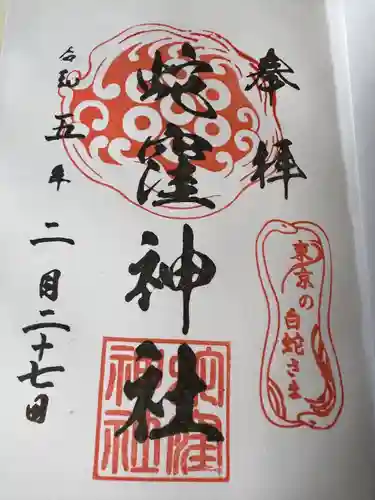 奉拝
東京の
白蛇さま
蛇窪神社
蛇窪
神社
令和五年
二月二十七日